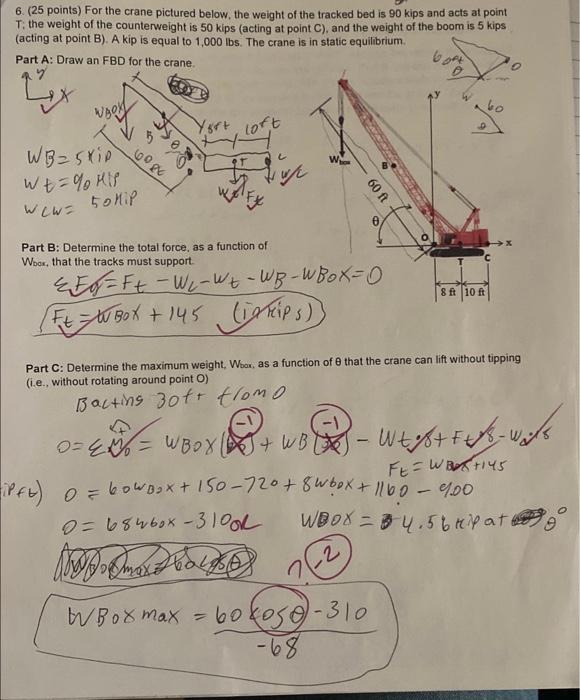 6. (25 points) For the crane pictured below, the weight of the tracked bed is 90 kips and acts at point
T; the weight of the counterweight is 50 kips (acting at point C), and the weight of the boom is 5 kips
(acting at point B). A kip is equal to 1,000 lbs. The crane is in static equilibrium.
Part A: Draw an FBD for the crane.
y
x
WBOX
B
θ
O
60
ft
8ft
10ft
T
C
Ft
WB = 5 kip
Wt = 90 kip
WCW = 50 kip
60ft
θ
O
W
60
θ
y
Wbox
B
60 ft
θ
O
x
T
C
8 ft
10 ft
Part B: Determine the total force, as a function of
Wbox, that the tracks must support.
ΣFy = Ft - Wc - Wt - WB - WBOX = 0
Ft = WBOX + 145 (in kips)
Part C: Determine the maximum weight, Wbox, as a function of θ that the crane can lift without tipping
(i.e., without rotating around point O)
B acting 30ft from O
-1
-1
0 = ΣMo = WBOX ( ) + WB ( ) - Wt·8 + Ft·8 - Wc·18
Ft = WBOX + 145
0 = 60WBOX + 150 - 720 + 8WBOX + 1160 - 900
0 = 68WBOX - 310
WBOX = 4.56 kip at 0°
? -2
WBOX max = 60cosθ - 310
-68